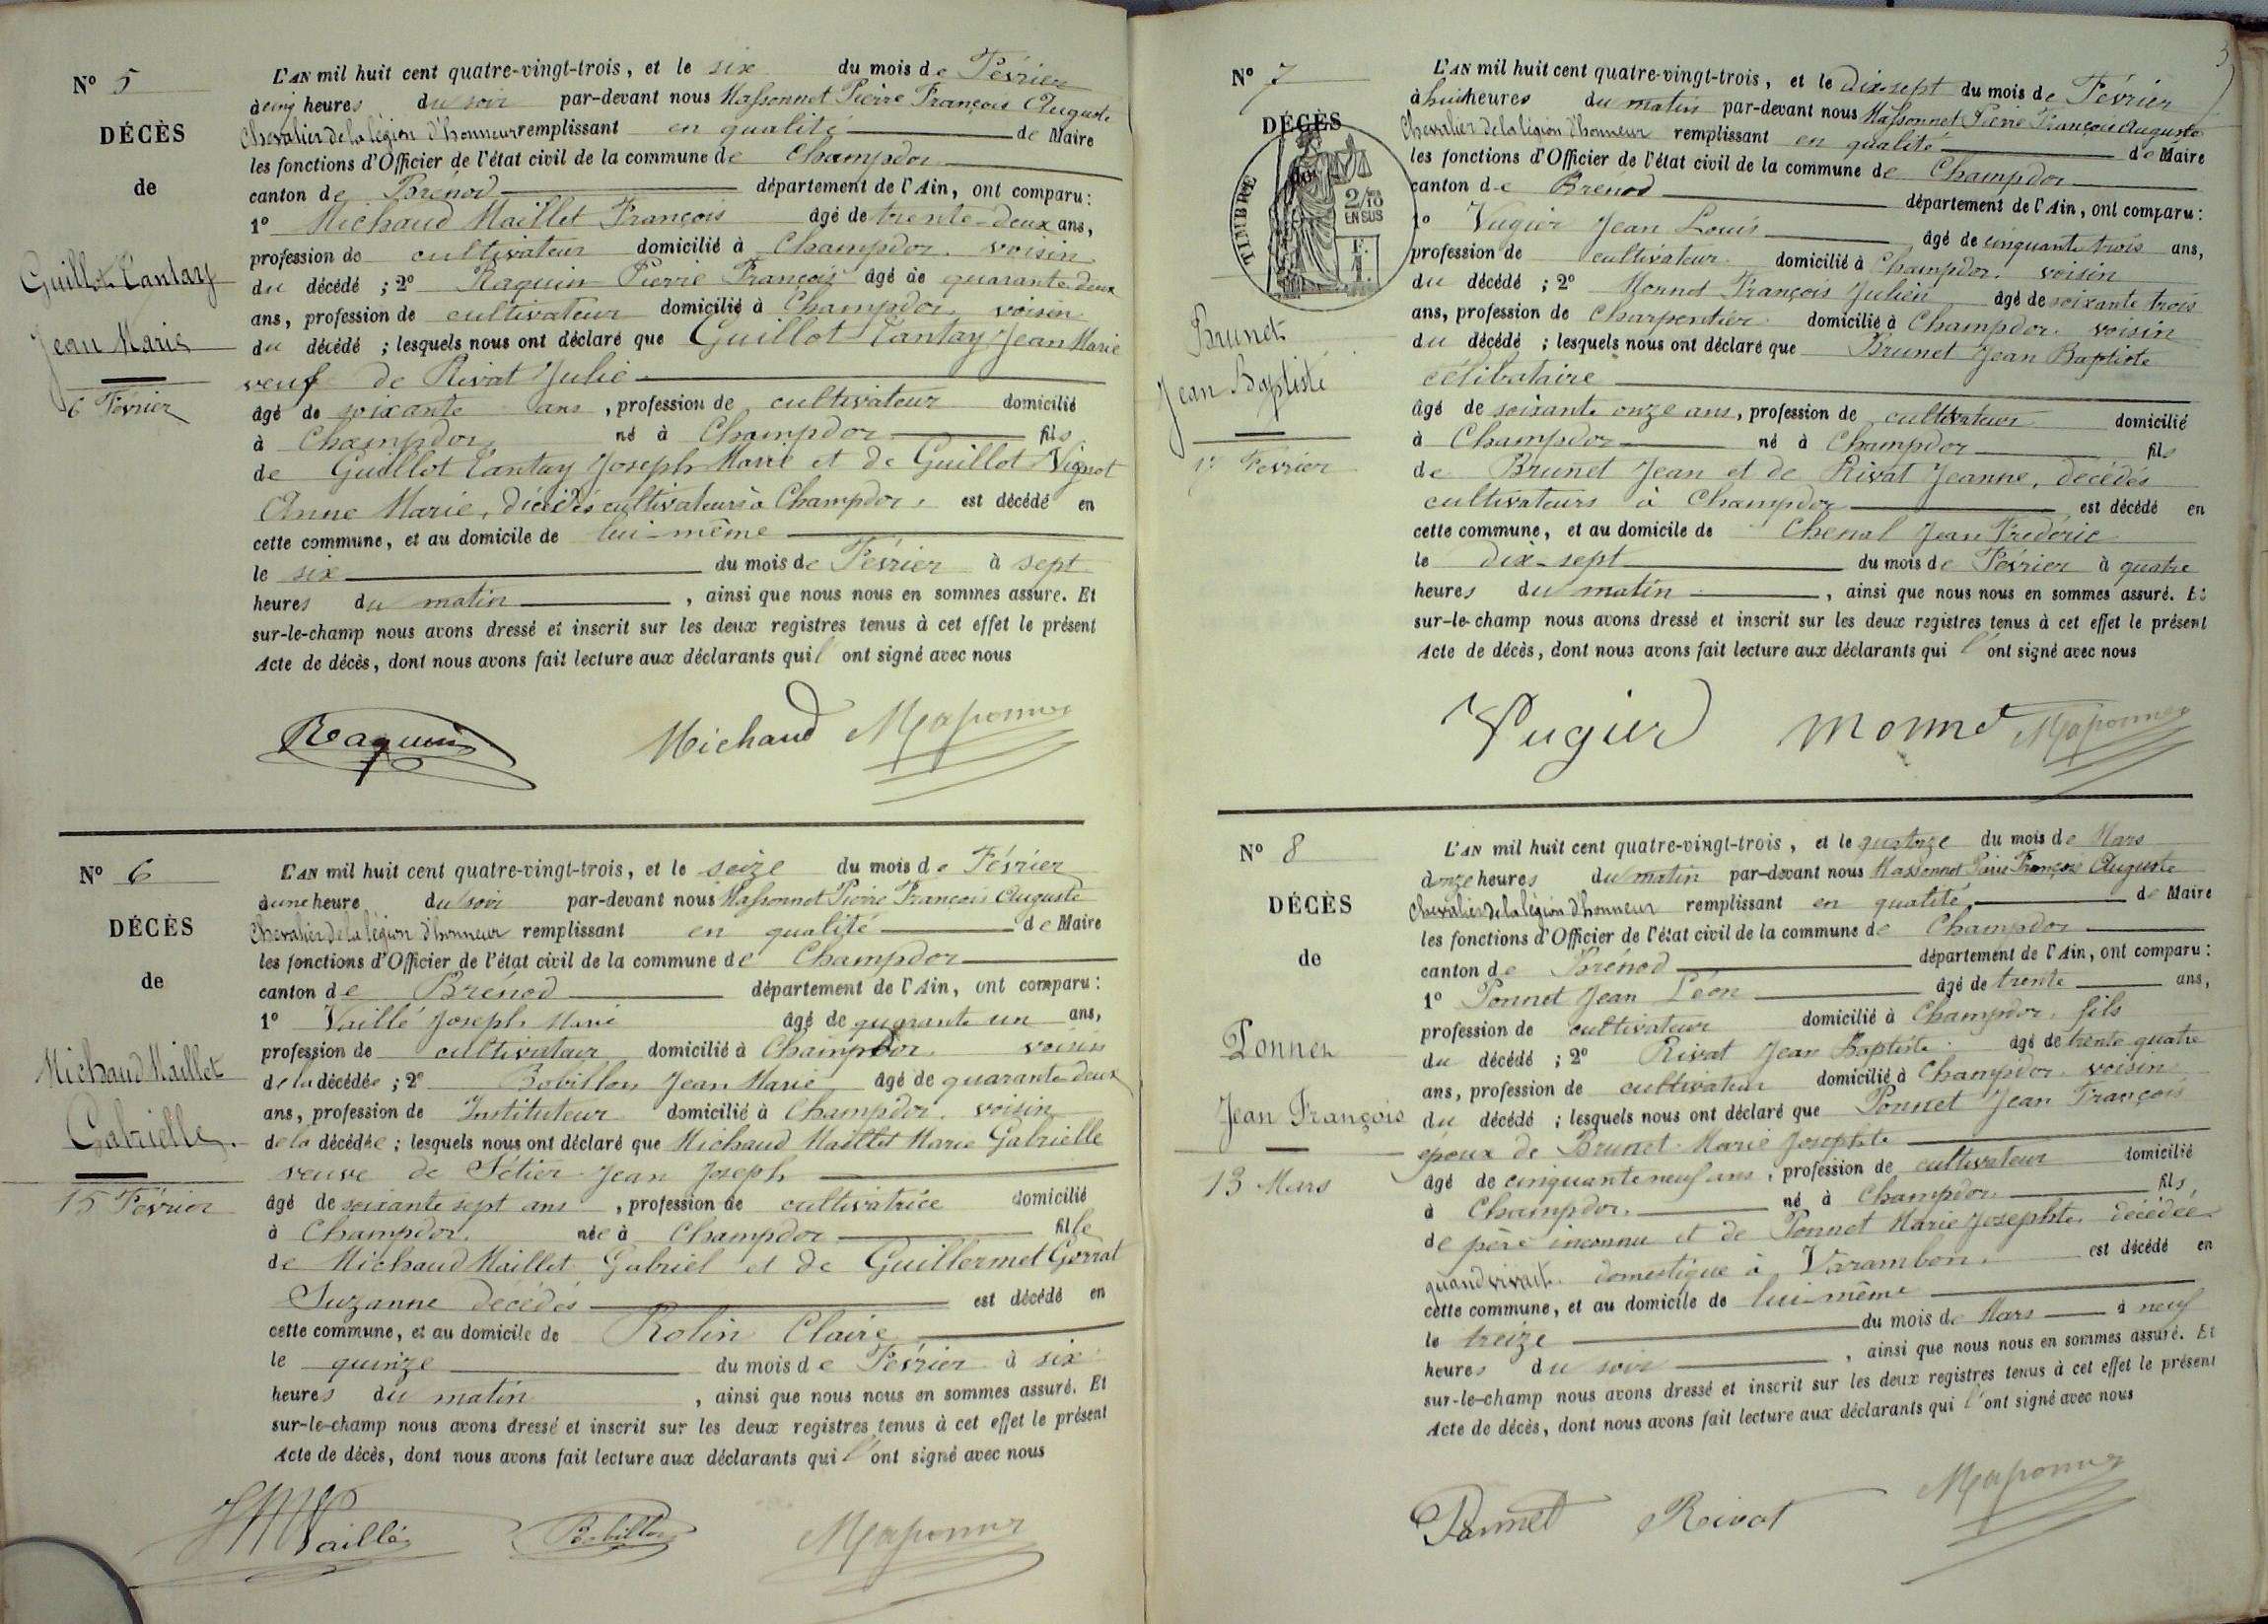 N° 5
DÉCÈS
de
Guillot Tantay
Jean Marie
6 Février
L'AN mil huit cent quatre-vingt-trois, et le six du mois de Février
à cinq heures du soir par-devant nous Massonnet Pierre François Auguste
Chevalier de la légion d'honneur remplissant en qualité de Maire
les fonctions d'Officier de l'état civil de la commune de Champdor
canton de Brénod département de l'Ain, ont comparu :
1° Michaud Maillet François âgé de trente-deux ans,
profession de cultivateur domicilié à Champdor. voisin
du décédé ; 2° Raquin Pierre François âgé de quarante deux
ans, profession de cultivateur domicilié à Champdor, voisin
du décédé ; lesquels nous ont déclaré que Guillot Tantay Jean Marie
veuf de Rivat Julie
âgé de soixante ans, profession de cultivateur domicilié
à Champdor, né à Champdor fils
de Guillot Tantay Joseph Marie et de Guillot Vignot
Anne Marie, décédés cultivateurs à Champdor, est décédé en
cette commune, et au domicile de lui-même
le six du mois de Février à sept
heures du matin, ainsi que nous nous en sommes assuré. Et
sur-le-champ nous avons dressé et inscrit sur les deux registres tenus à cet effet le présent
Acte de décès, dont nous avons fait lecture aux déclarants qui l' ont signé avec nous
Raquin Michaud Massonnet
N° 6
DÉCÈS
de
Michaud Maillet
Gabrielle.
15 Février
L'AN mil huit cent quatre-vingt-trois, et le seize du mois de Février
à une heure du soir par-devant nous Massonnet Pierre François Auguste
Chevalier de la légion d'honneur remplissant en qualité de Maire
les fonctions d'Officier de l'état civil de la commune de Champdor
canton de Brénod département de l'Ain, ont comparu :
1° Vaillé Joseph Marie âgé de quarante un ans,
profession de cultivateur domicilié à Champdor. voisin
de la décédée ; 2° Bobillon Jean Marie âgé de quarante deux
ans, profession de Instituteur domicilié à Champdor, voisin
de la décédée ; lesquels nous ont déclaré que Michaud Maillet Marie Gabrielle
veuve de Sétier Jean Joseph
âgé de soixante sept ans, profession de cultivatrice domicilié
à Champdor, née à Champdor fille
de Michaud Maillet Gabriel et de Guillermet Gerrat
Suzanne décédés est décédé en
cette commune, et au domicile de Rolin Claire
le quinze du mois de Février à six
heures du matin, ainsi que nous nous en sommes assuré. Et
sur-le-champ nous avons dressé et inscrit sur les deux registres tenus à cet effet le présent
Acte de décès, dont nous avons fait lecture aux déclarants qui l' ont signé avec nous
JM Vaillé Bobillon Massonnet
3
N° 7
DÉCÈS
TIMBRE
2/10
EN SUS
Brunet
Jean Baptiste
17 Février
L'AN mil huit cent quatre-vingt-trois, et le dix-sept du mois de Février
à huit heures du matin par-devant nous Massonnet Pierre François Auguste
Chevalier de la légion d'honneur remplissant en qualité de Maire
les fonctions d'Officier de l'état civil de la commune de Champdor
canton de Brénod département de l'Ain, ont comparu :
1° Vugier Jean Louis âgé de cinquante trois ans,
profession de cultivateur domicilié à Champdor. voisin
du décédé ; 2° Monnet François Julien âgé de soixante trois
ans, profession de Charpentier domicilié à Champdor. voisin
du décédé ; lesquels nous ont déclaré que Brunet Jean Baptiste
célibataire
âgé de soixante onze ans, profession de cultivateur domicilié
à Champdor né à Champdor fils
de Brunet Jean et de Rivat Jeanne, décédés
cultivateurs à Champdor est décédé en
cette commune, et au domicile de Chenal Jean Frédéric
le dix-sept du mois de Février à quatre
heures du matin, ainsi que nous nous en sommes assuré. Et
sur-le-champ nous avons dressé et inscrit sur les deux registres tenus à cet effet le présent
Acte de décès, dont nous avons fait lecture aux déclarants qui l' ont signé avec nous
Vugier Monnet Massonnet
N° 8
DÉCÈS
de
Ponnet
Jean François
13 Mars
L'AN mil huit cent quatre-vingt-trois, et le quatorze du mois de Mars
à onze heures du matin par-devant nous Massonnet Pierre François Auguste
Chevalier de la légion d'honneur remplissant en qualité de Maire
les fonctions d'Officier de l'état civil de la commune de Champdor
canton de Brénod département de l'Ain, ont comparu :
1° Ponnet Jean Léon âgé de trente ans,
profession de cultivateur domicilié à Champdor, fils
du décédé ; 2° Rivat Jean Baptiste âgé de trente quatre
ans, profession de cultivateur domicilié à Champdor voisin
du décédé ; lesquels nous ont déclaré que Ponnet Jean François
époux de Brunet Marie Josephte
âgé de cinquante neuf ans, profession de cultivateur domicilié
à Champdor, né à Champdor fils
de père inconnu et de Ponnet Marie Josephte, décédée
quand vivait domestique à Varambon, est décédé en
cette commune, et au domicile de lui-même
le treize du mois de Mars à neuf
heures du soir, ainsi que nous nous en sommes assuré. Et
sur-le-champ nous avons dressé et inscrit sur les deux registres tenus à cet effet le présent
Acte de décès, dont nous avons fait lecture aux déclarants qui l' ont signé avec nous
Ponnet Rivat Massonnet